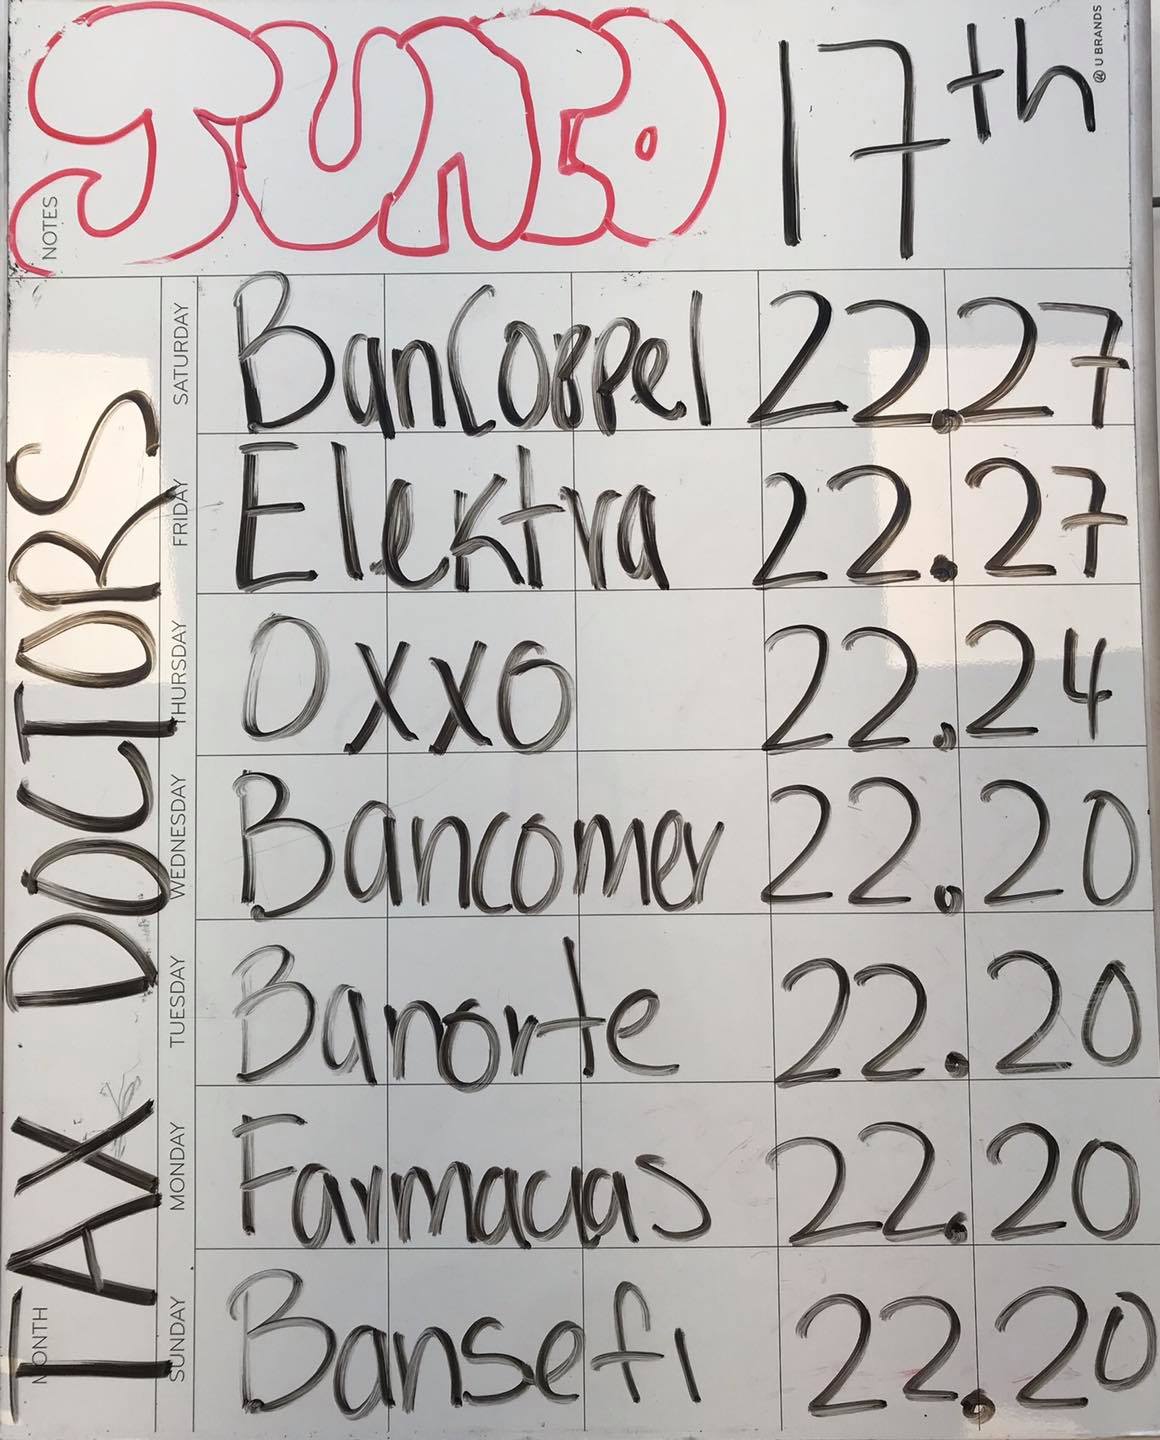 JUNIO 17th
U BRANDS
NOTES
TAX DOCTORS
MONTH
SATURDAY
BanCoppel 22.27
FRIDAY
Elektra 22.27
THURSDAY
Oxxo 22.24
WEDNESDAY
Bancomer 22.20
TUESDAY
Banorte 22.20
MONDAY
Farmacias 22.20
SUNDAY
Bansefi 22.20